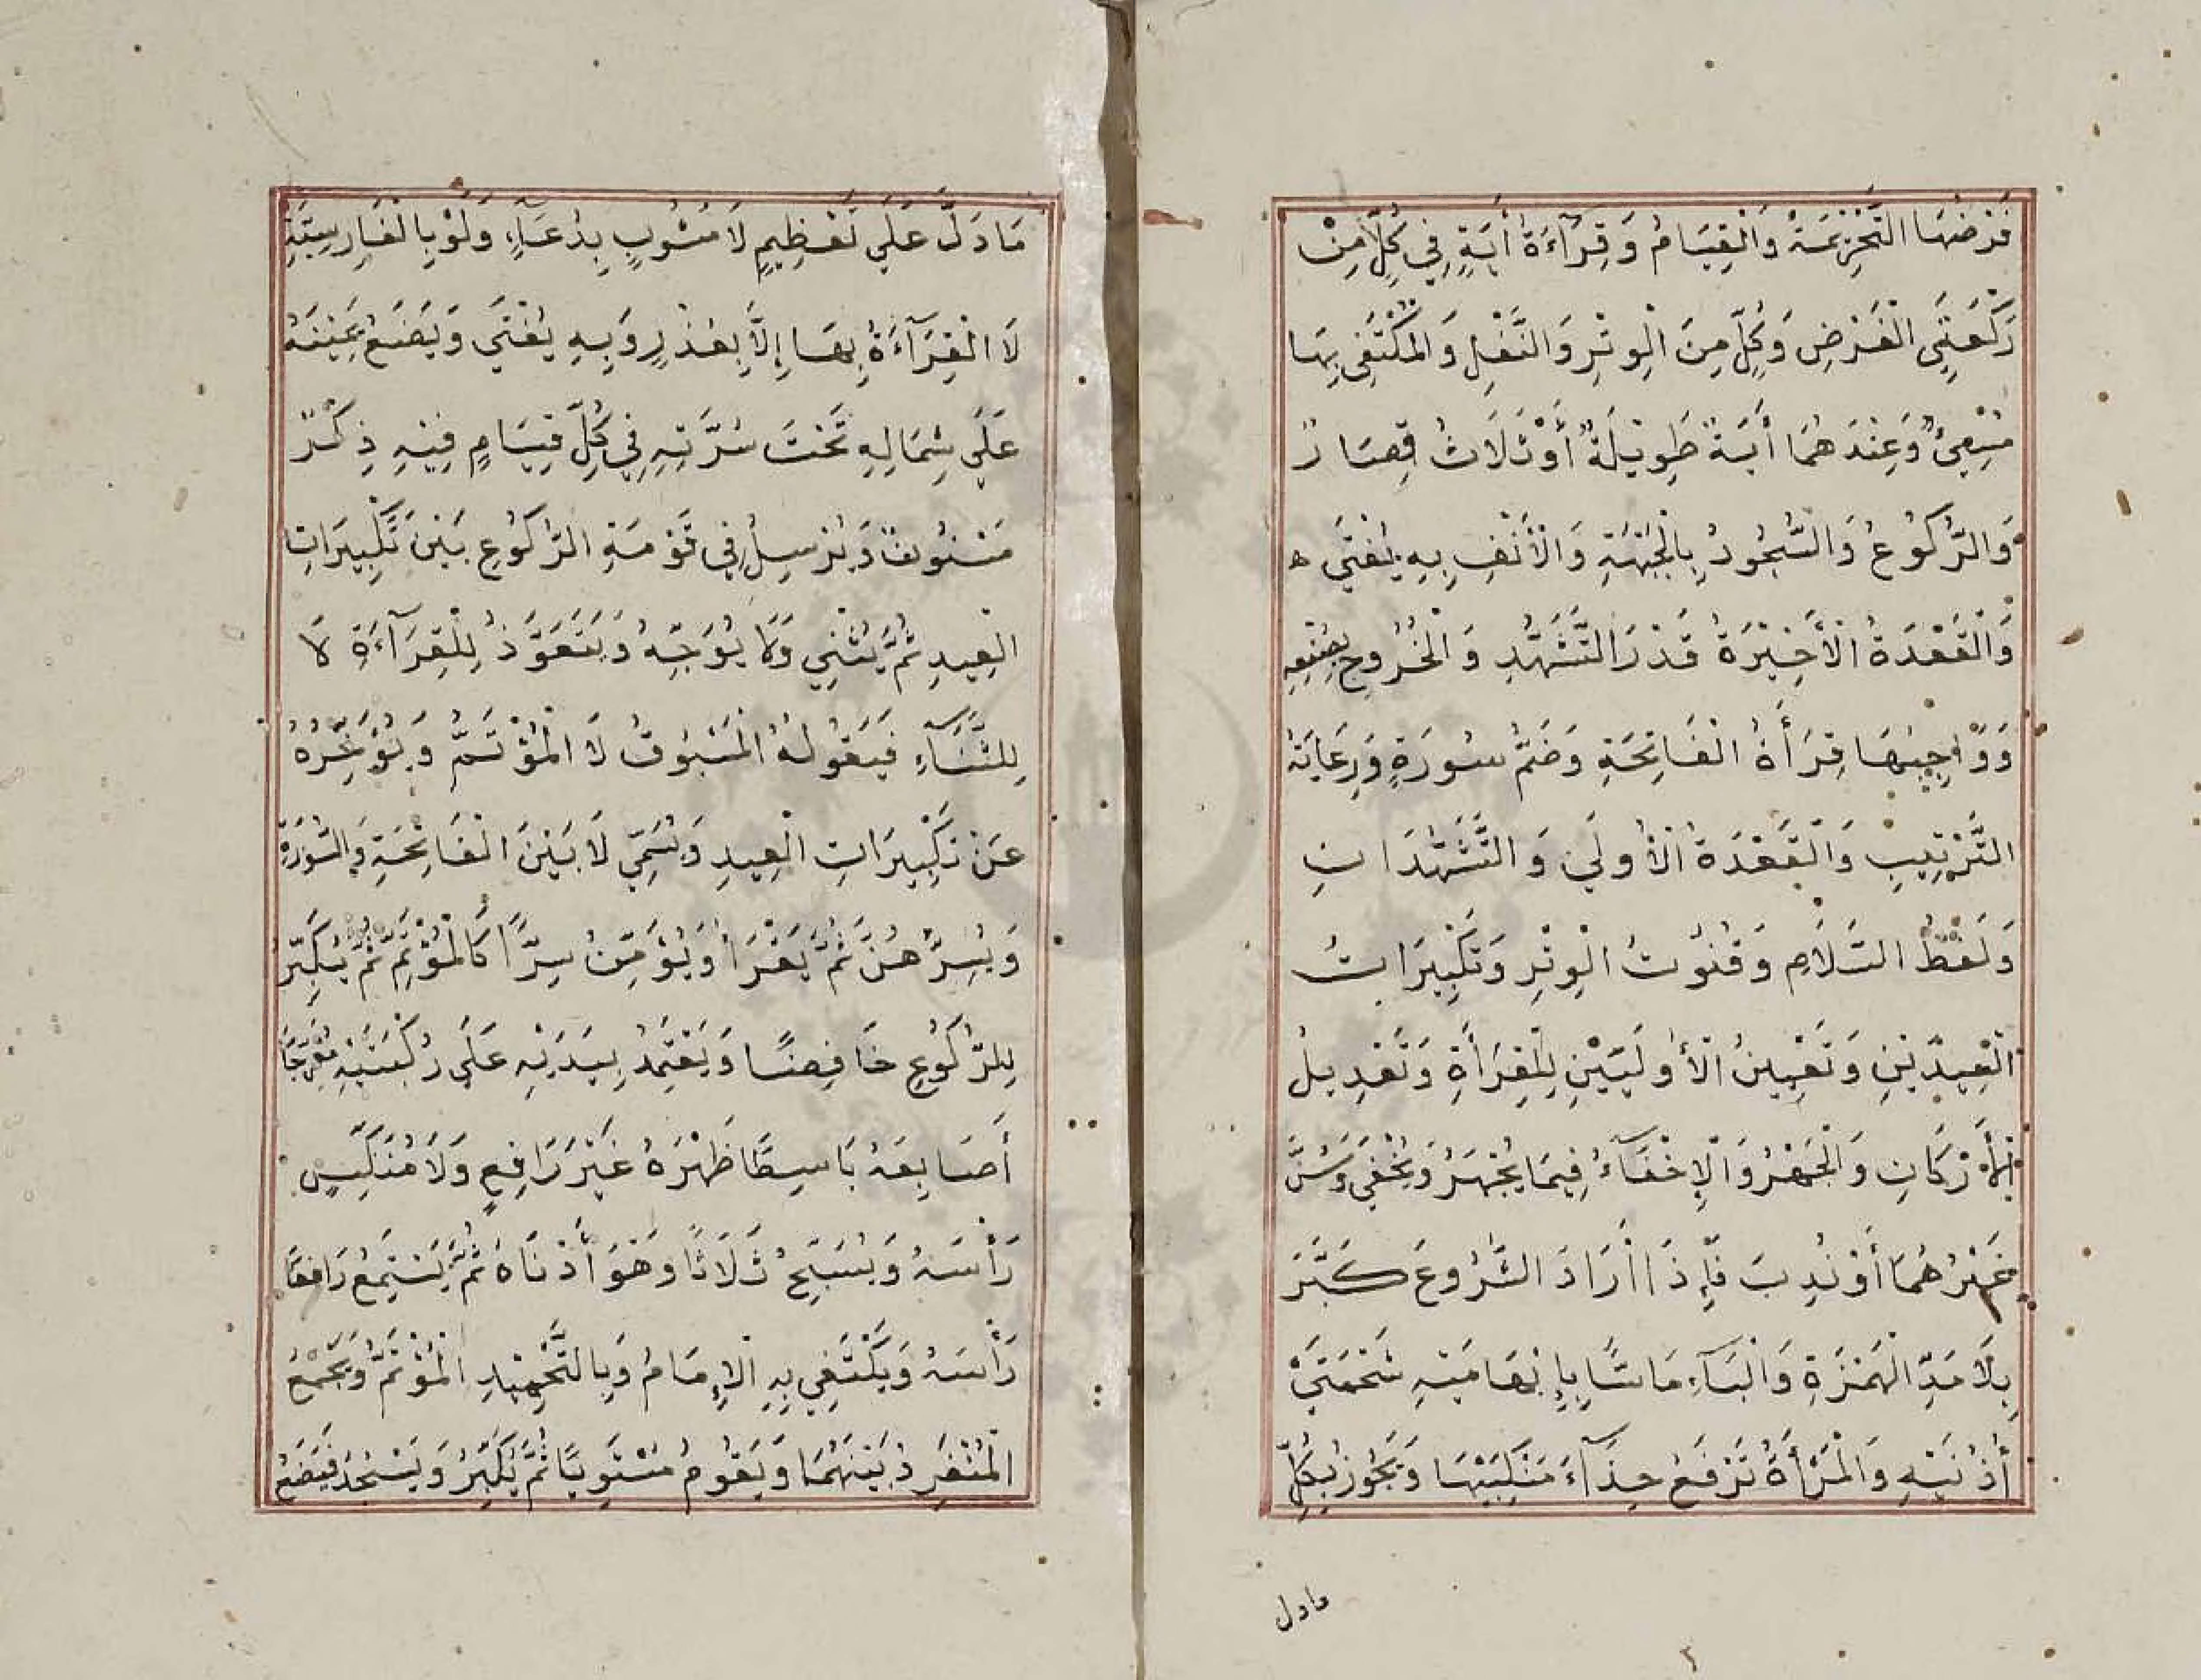 فَرْضُهَا التَّحْرِيْمَةُ وَالْقِيَامُ وَقِرَآءَةُ أٰيَةٍ فِي كُلٍّ مِنْ
رَكْعَتَيِ الْفَرْضِ وَكُلٍّ مِنَ الْوِتْرِ وَالنَّفْلِ وَالْمُكْتَفِى بِهَا
مُسِيْئٌ وَعِنْدَهُمَا أٰيَةٌ طَوِيْلَةٌ أَوْ ثَلَاثُ قِصَارٌ
وَالرُّكُوْعُ وَالسُّجُوْدُ بِالْجَبْهَةِ وَالْأَنْفِ بِهِ يُفْتَي ه
وَالْقَعْدَةُ الْأَخِيْرَةُ قَدْرَ التَّشَهُّدِ وَالْخُرُوْجِ بِصُنْعِهِ
وَوَاجِبُهَا قِرَأَةُ الْفَاتِحَةِ وَضَمُّ سُورَةٍ وَرِعَايَةُ
التَّرْتِيْبِ وَالْقَعْدَةُ الْأُولَي وَالتَّشَهُّدَاتِ
وَلَفْظُ السَّلَامِ وَقُنُوْتُ الْوِتْرِ وَتَكْبِيْرَاتُ
الْعِيدَيْنِ وَتَعْيِيْنُ الْأُولَيَيْنِ لِلْقِرَأَةِ وَتَعْدِيلُ
الْأَرْكَانِ وَالْجَهْرُ وَالْإِخْفَآءُ فِيمَا يُجْهَرُ وَيُخْفَي وَسُنَّ
غَيْرُهُمَا أَوْ نُدِبَ فَإِذَا أَرَادَ الشُّرُوعَ كَبَّرَ
بِلَا مَدِّ الْهَمْزَةِ وَالْبَآءِ مَاسًّا بِإِبْهَامَيْهِ شَحْمَتَيْ
أُذُنَيْهِ وَالْمَرْأَةُ تَرْفَعُ حِذَآءَ مَنْكِبَيْهَا وَيَجُوزُ بِكُلِّ
مادل
٢
مَادَلَّ عَلَي تَعْظِيمٍ لَا مَشُوبٍ بِدُعَآءٍ، وَلَوْ بِالْفَارِسِيَّةِ
لَا الْقِرَآءَةُ بِهَا إِلَّا بِعُذْرٍ وَبِهِ يُفْتَي وَيَضَعُ يَمِيْنَهُ
عَلَى شِمَالِهِ تَحْتَ سُرَّتِهِ فِي كُلِّ قِيَامٍ فِيْهِ ذِكْرٌ
مَسْنُوْنٌ وَيُرْسِلُ فِي قَوْمَةِ الرُّكُوْعِ بَيْنَ تَكْبِيرَاتِ
الْعِيدِ ثُمَّ يُثْنِي وَلَا يُوَجِّهُ وَيَتَعَوَّذُ لِلْقِرَآءَةِ لَا
لِلثَّنَآءِ فَيَقُولُهُ الْمَسْبُوقُ لَا الْمُؤْتَمُّ وَيُؤَخِّرُهُ
عَنْ تَكْبِيْرَاتِ الْعِيدِ وَيُسَمِّي لَا بَيْنَ الْفَاتِحَةِ وَالسُّوْرَةِ
وَيُسِرُّهُنَّ ثُمَّ يَقْرَأُ وَيُؤَمِّنُ سِرًّا كَالْمُؤْتَمِّ ثُمَّ يُكَبِّرُ
لِلرُّكُوْعِ خَافِضًا وَيَعْتَمِدُ بِيَدَيْهِ عَلَي رُكْبَتَيْهِ مُفَرِّجًا
أَصَابِعَهُ بَاسِطًا ظَهْرَهُ غَيْرَ رَافِعٍ وَلَا مُنَكِّسٍ
رَأْسَهُ وَيُسَبِّحُ ثَلَاثًا وَهُوَ أَدْنَاهُ ثُمَّ يَسْتَمِعُ رَافِعًا
رَأْسَهُ وَيَكْتَفِي بِهِ الْإِمَامُ وَبِالتَّحْمِيْدِ الْمُؤْتَمُّ وَيَجْمَعُ
الْمُنْفَرِدُ بَيْنَهُمَا وَيَقُومُ مُسْتَوِيًا ثُمَّ يُكَبِّرُ وَيَسْجُدُ فَيَضَعُ